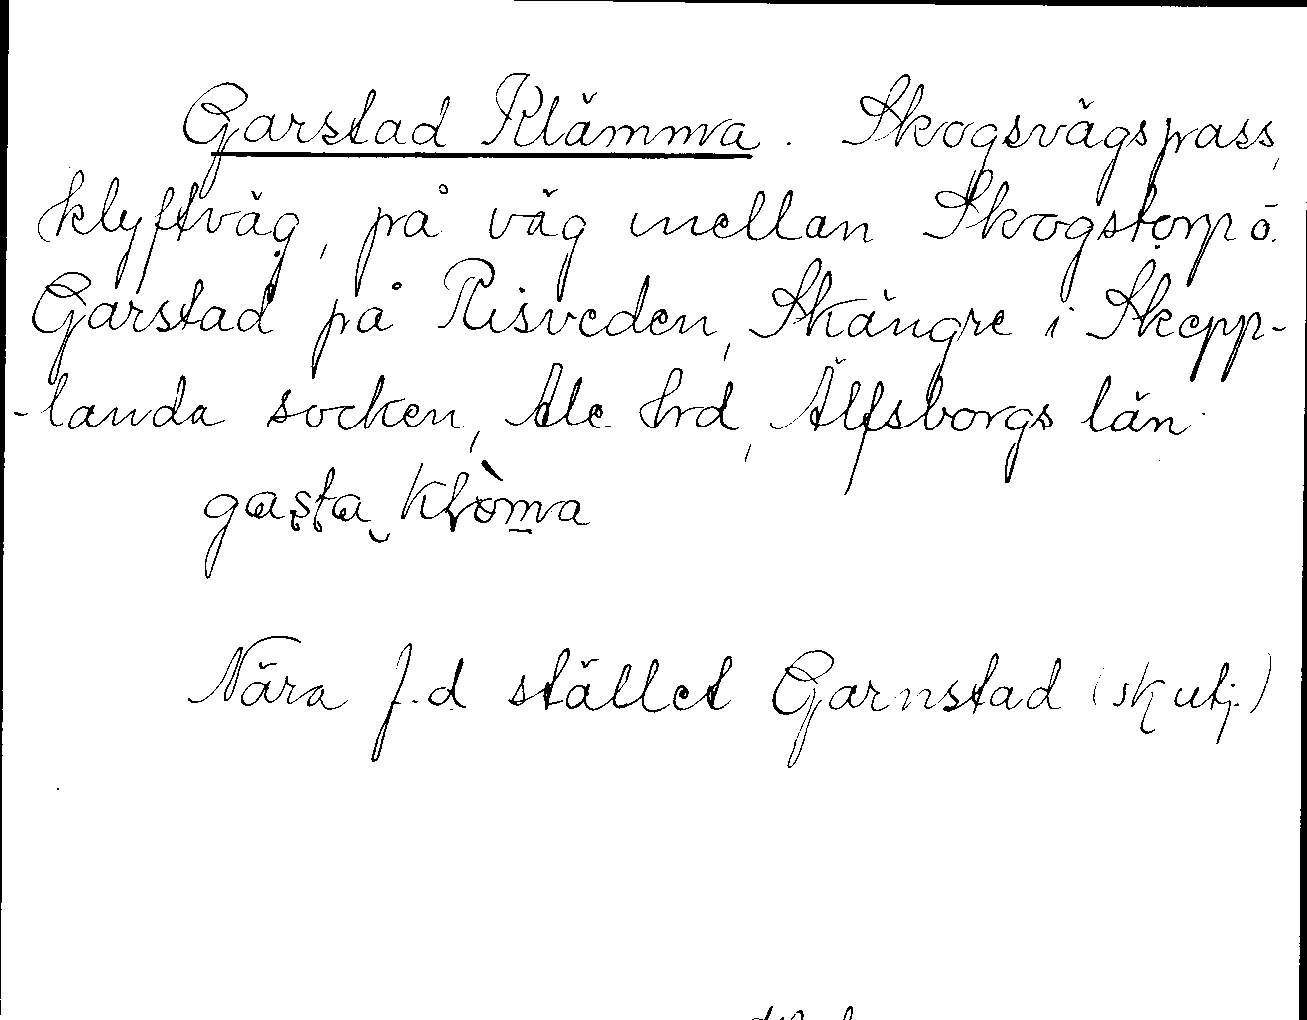 Garstad Klämma. Skogsvägspass,
klyftväg, på väg mellan Skogstorp o.
Garstad på Risveden, Skångre i Skepp-
-landa socken, Ale hrd, Älfsborgs län.
Nära f.d stället Garnstad (sk utj.)